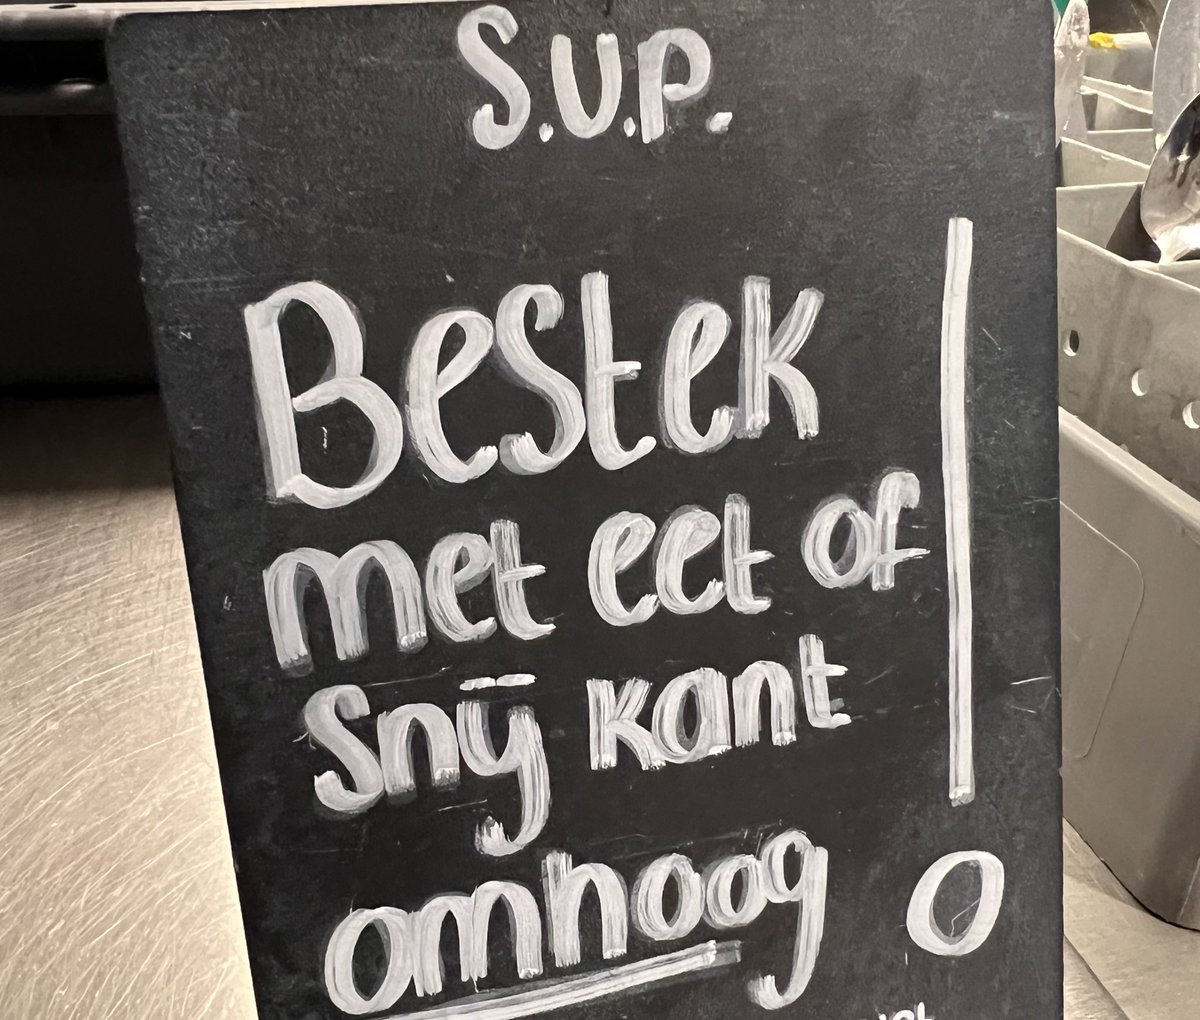 S.U.P.
Bestek
met eet of
snij kant
omhoog !